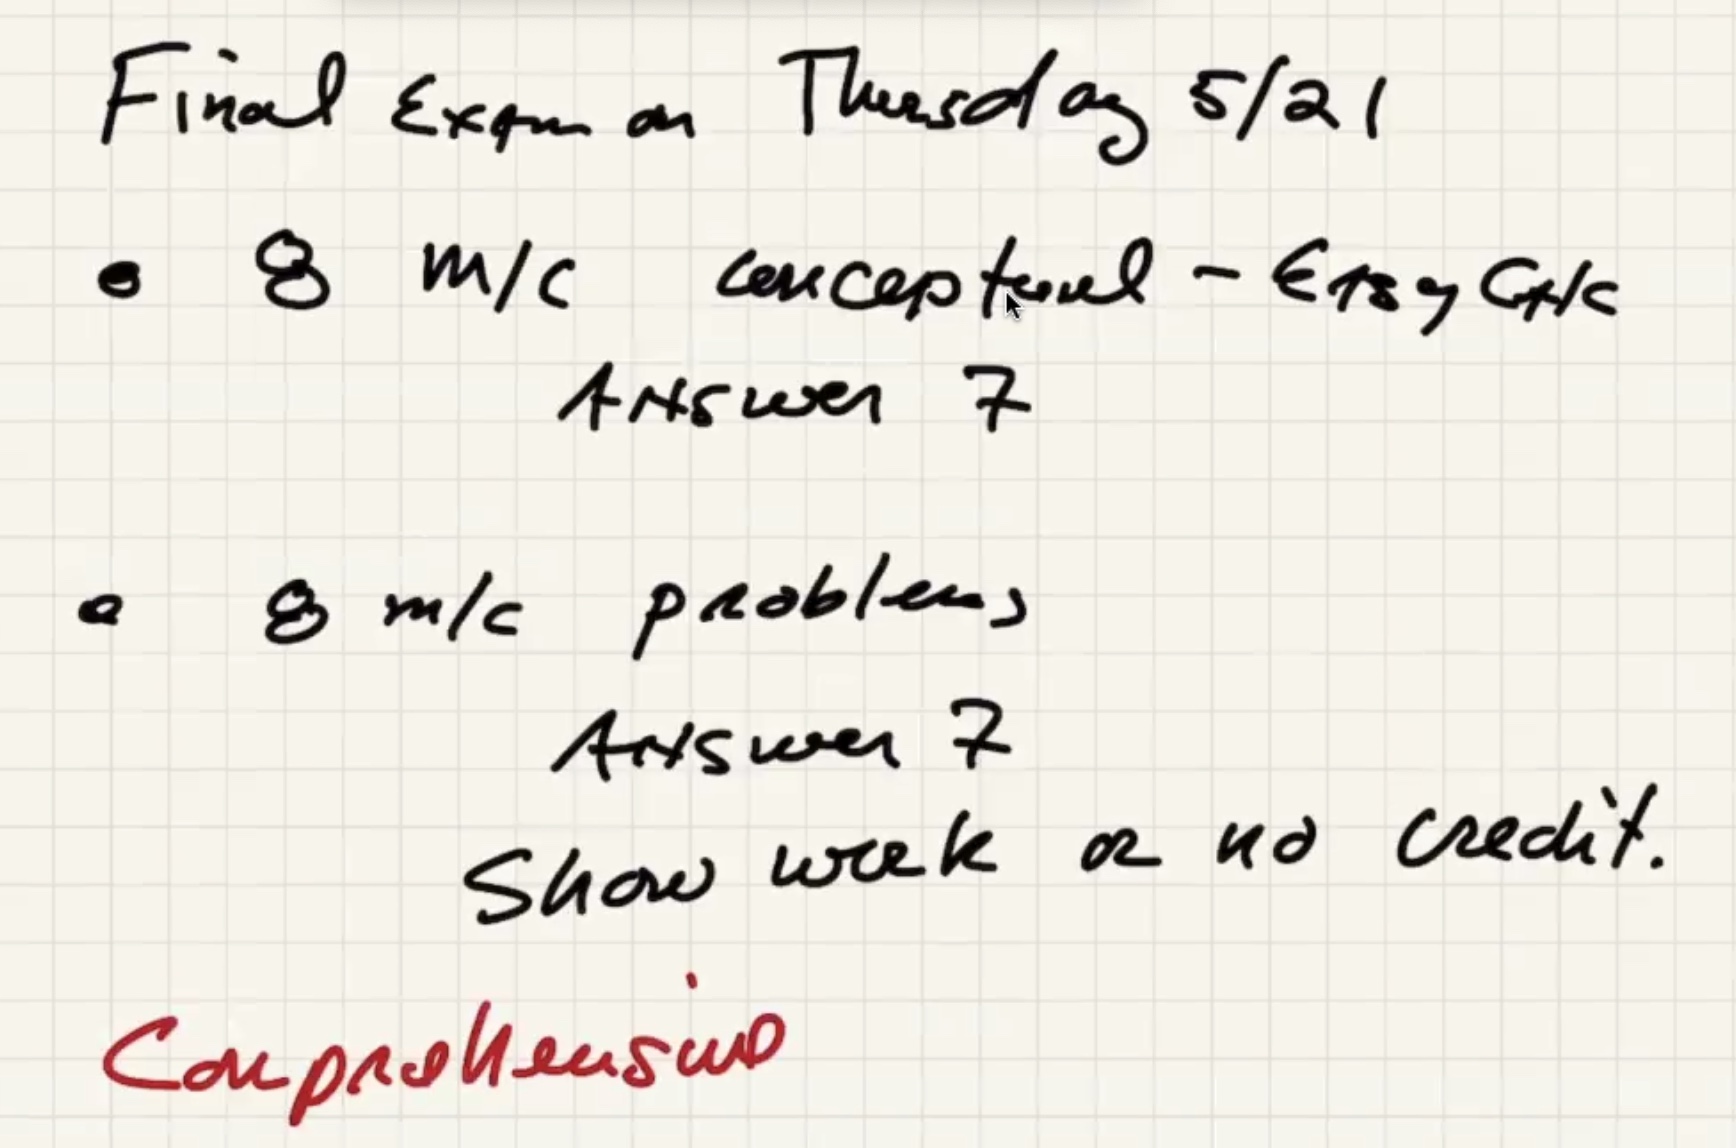 Final Exam on Thursday 5/21
• 8 m/c conceptual - Easy
Answer 7
• 8 m/c problems
Answer 7
Show work or no credit.
Comprehensive